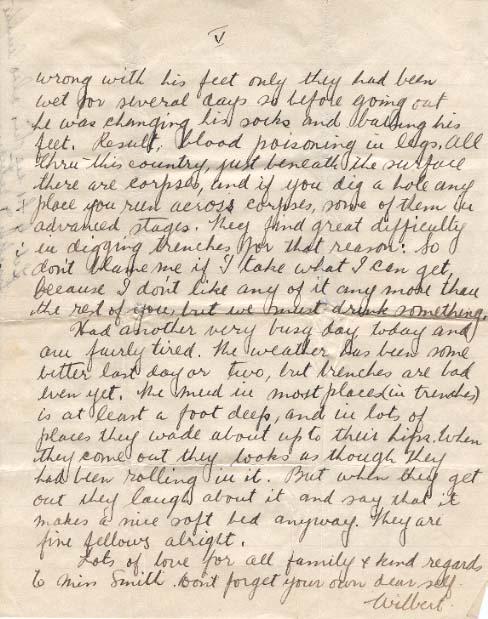 V
wrong with his feet only they had been
wet for several days so before going out
he was changing his socks and bathing his
feet. Result, blood poisoning in legs. All
thru this country, just beneath the surface
there are corpses, and if you dig a hole any
place you run across corpses, some of them in
advanced stages. They find great difficulty
in digging trenches for that reason: So
don't blame me if I take what I can get,
because I don't like any of it any more than
the rest of you, but we must drink something.
Had another very busy day today and
am fairly tired. The weather has been some
better last day or two, but trenches are bad
even yet. The mud in most places (in trenches)
is at least a foot deep, and in lots of
places they wade about up to their hips. When
they come out they looks as though they
had been rolling in it. But when they get
out they laugh about it and say that it
makes a nice soft bed anyway. They are
fine fellows alright.
Lots of love for all family & kind regards
to Miss Smith. Don't forget your own dear self.
Wilbert.